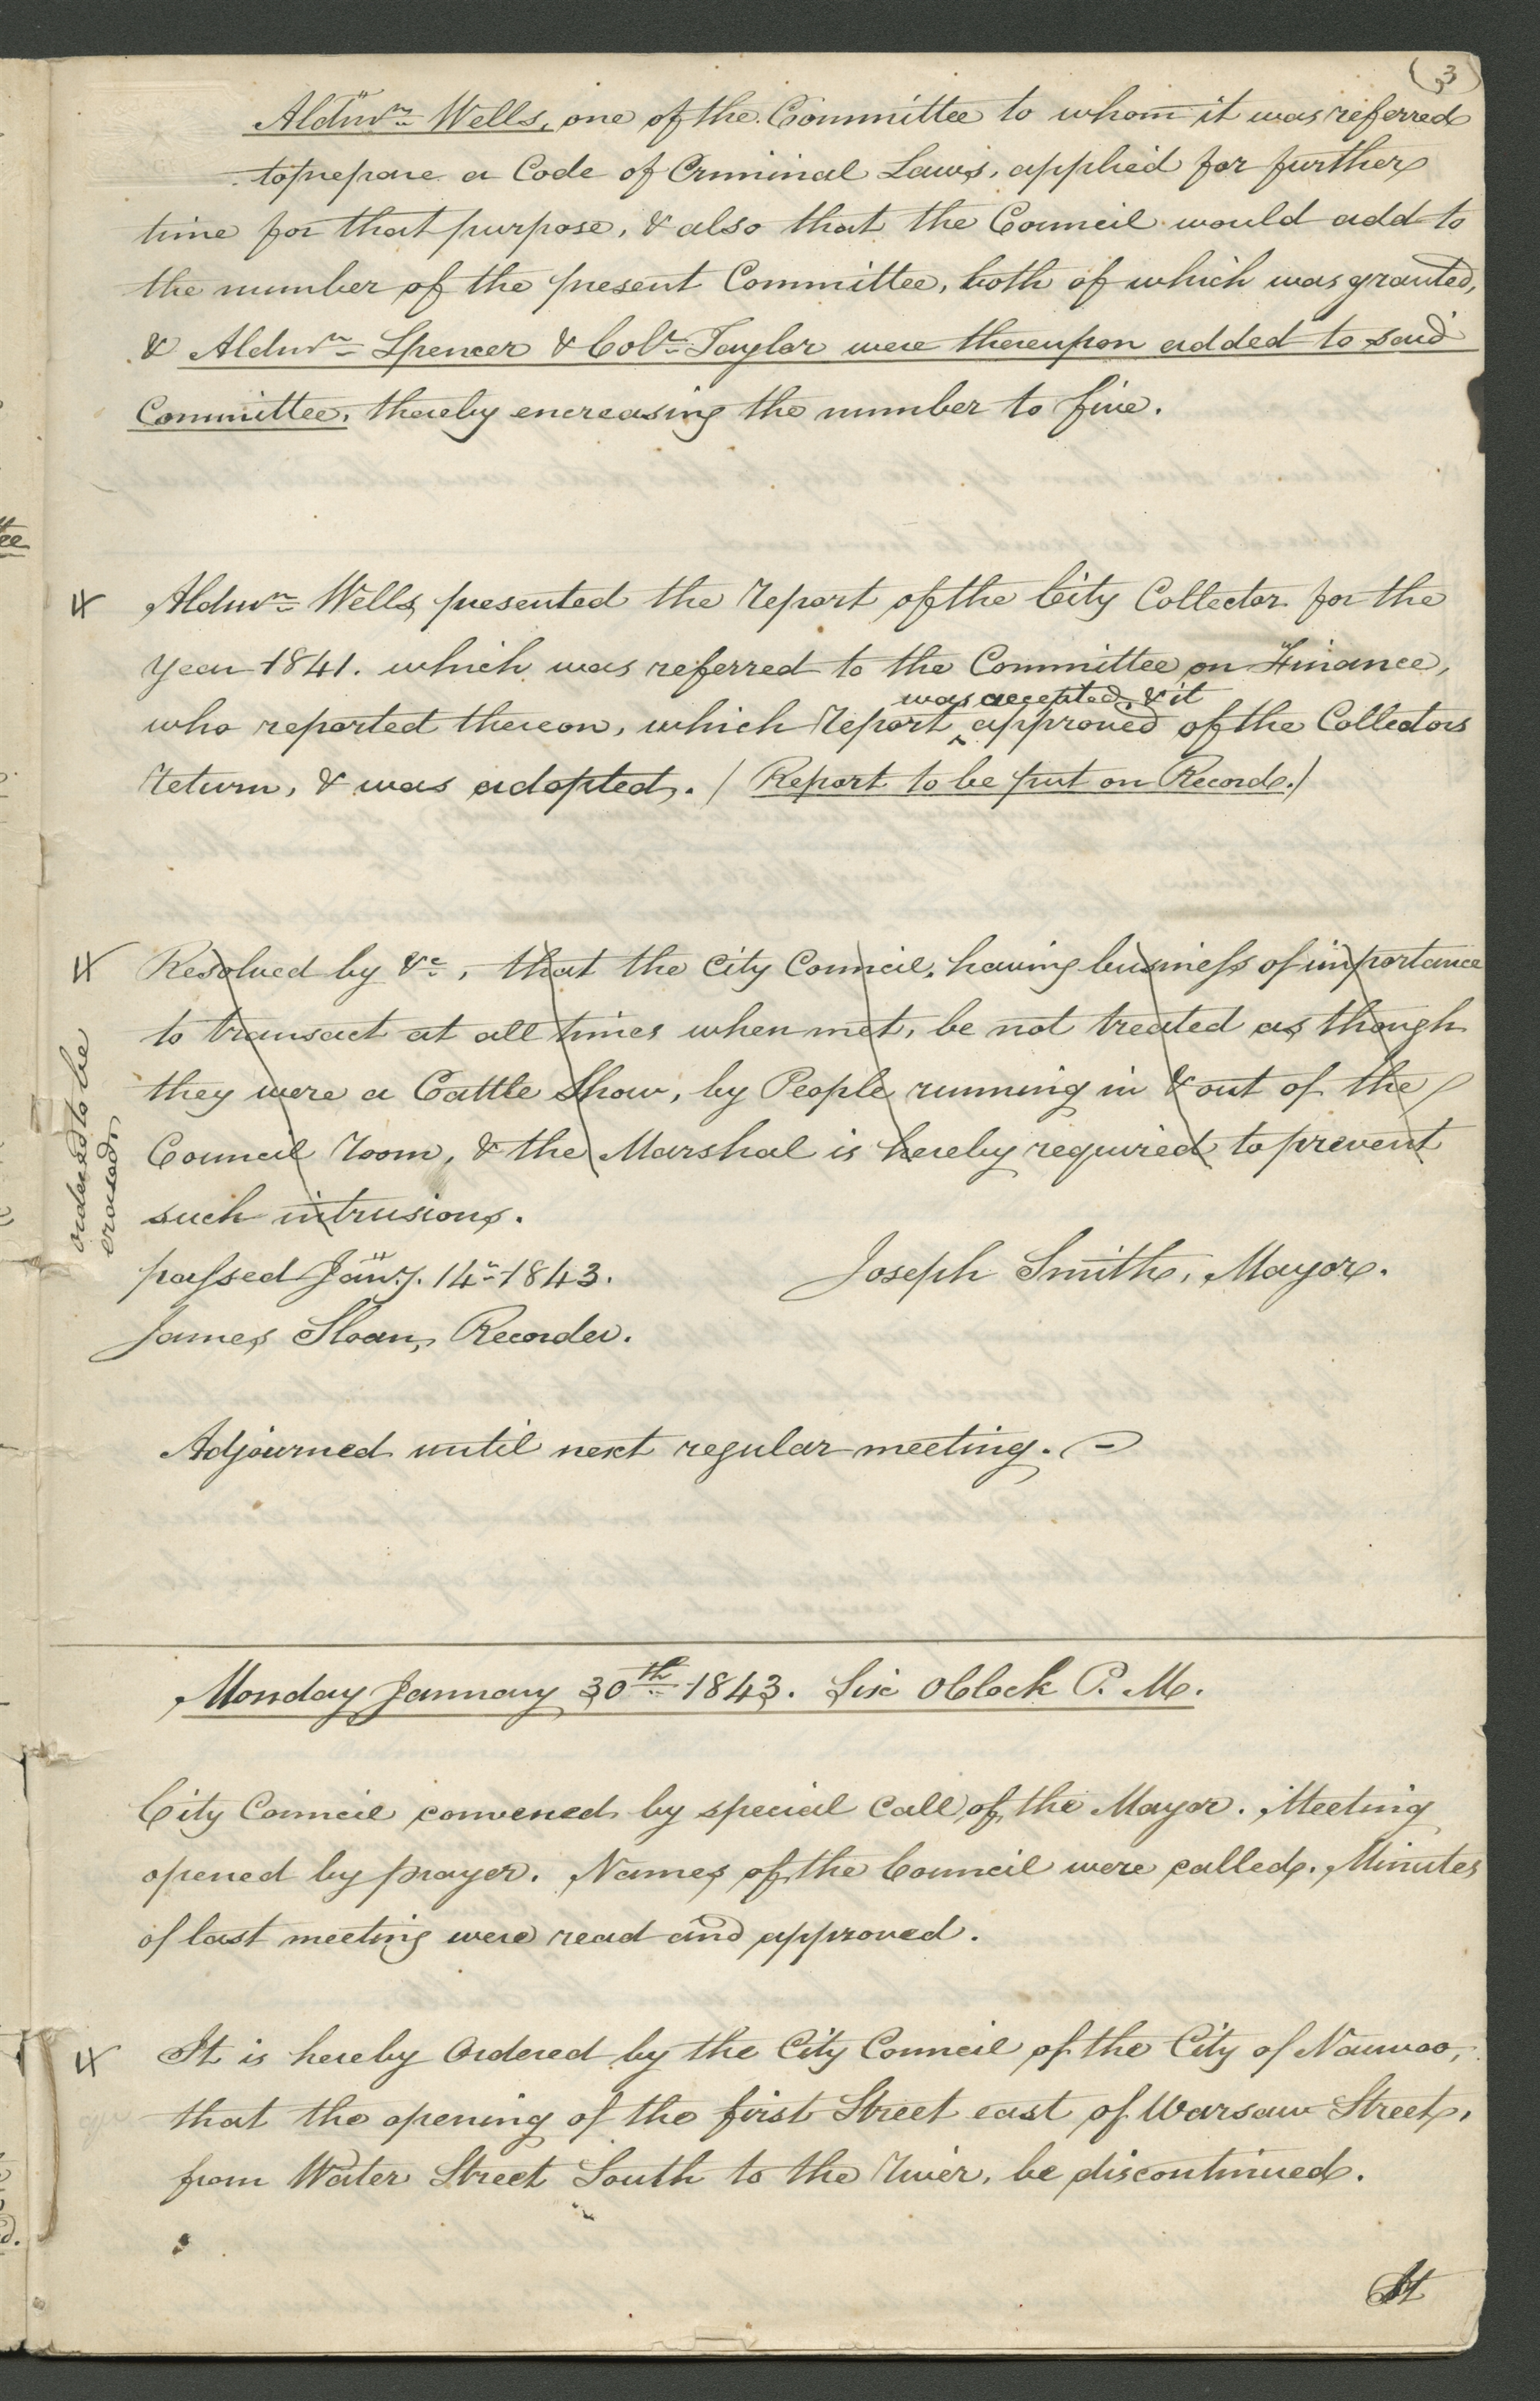 (3)
Aldmn. Wells, one of the Committee to whom it was referred
to prepare a Code of Criminal Laws, applied for further
time for that purpose, & also that the Council would add to
the number of the present Committee, both of which was granted,
& Aldmn. Spencer & Colr. Taylor were thereupon added to said
Committee, thereby encreasing the number to five.
Aldmn. Wells, presented the Report of the City Collector for the
year 1841. which was referred to the Committee on Finance,
was accepted, & it
who reported thereon, which Report ^ approved of the Collectors
Return, & was adopted. / Report to be put on Record. /
Resolved by &c., that the City Council, having business of importance
to transact at all times when met, be not treated as though
they were a Cattle Show, by People running in & out of the
Council Room, & the Marshal is hereby required to prevent
such intrusions.
ordered to be
erased
passed Jany. 14. 1843.
Joseph Smith, Mayor.
James Sloan, Recorder.
Adjourned until next regular meeting.
Monday January 30th 1843. Six OClock P. M.
City Council convened by special Call of the Mayor. Meeting
opened by prayer. Names of the Council were called. Minutes
of last meeting were read and approved.
It is hereby Ordered by the City Council of the City of Nauvoo,
that the opening of the first Street east of Warsaw Street,
from Water Street South to the River, be discontinued.
It